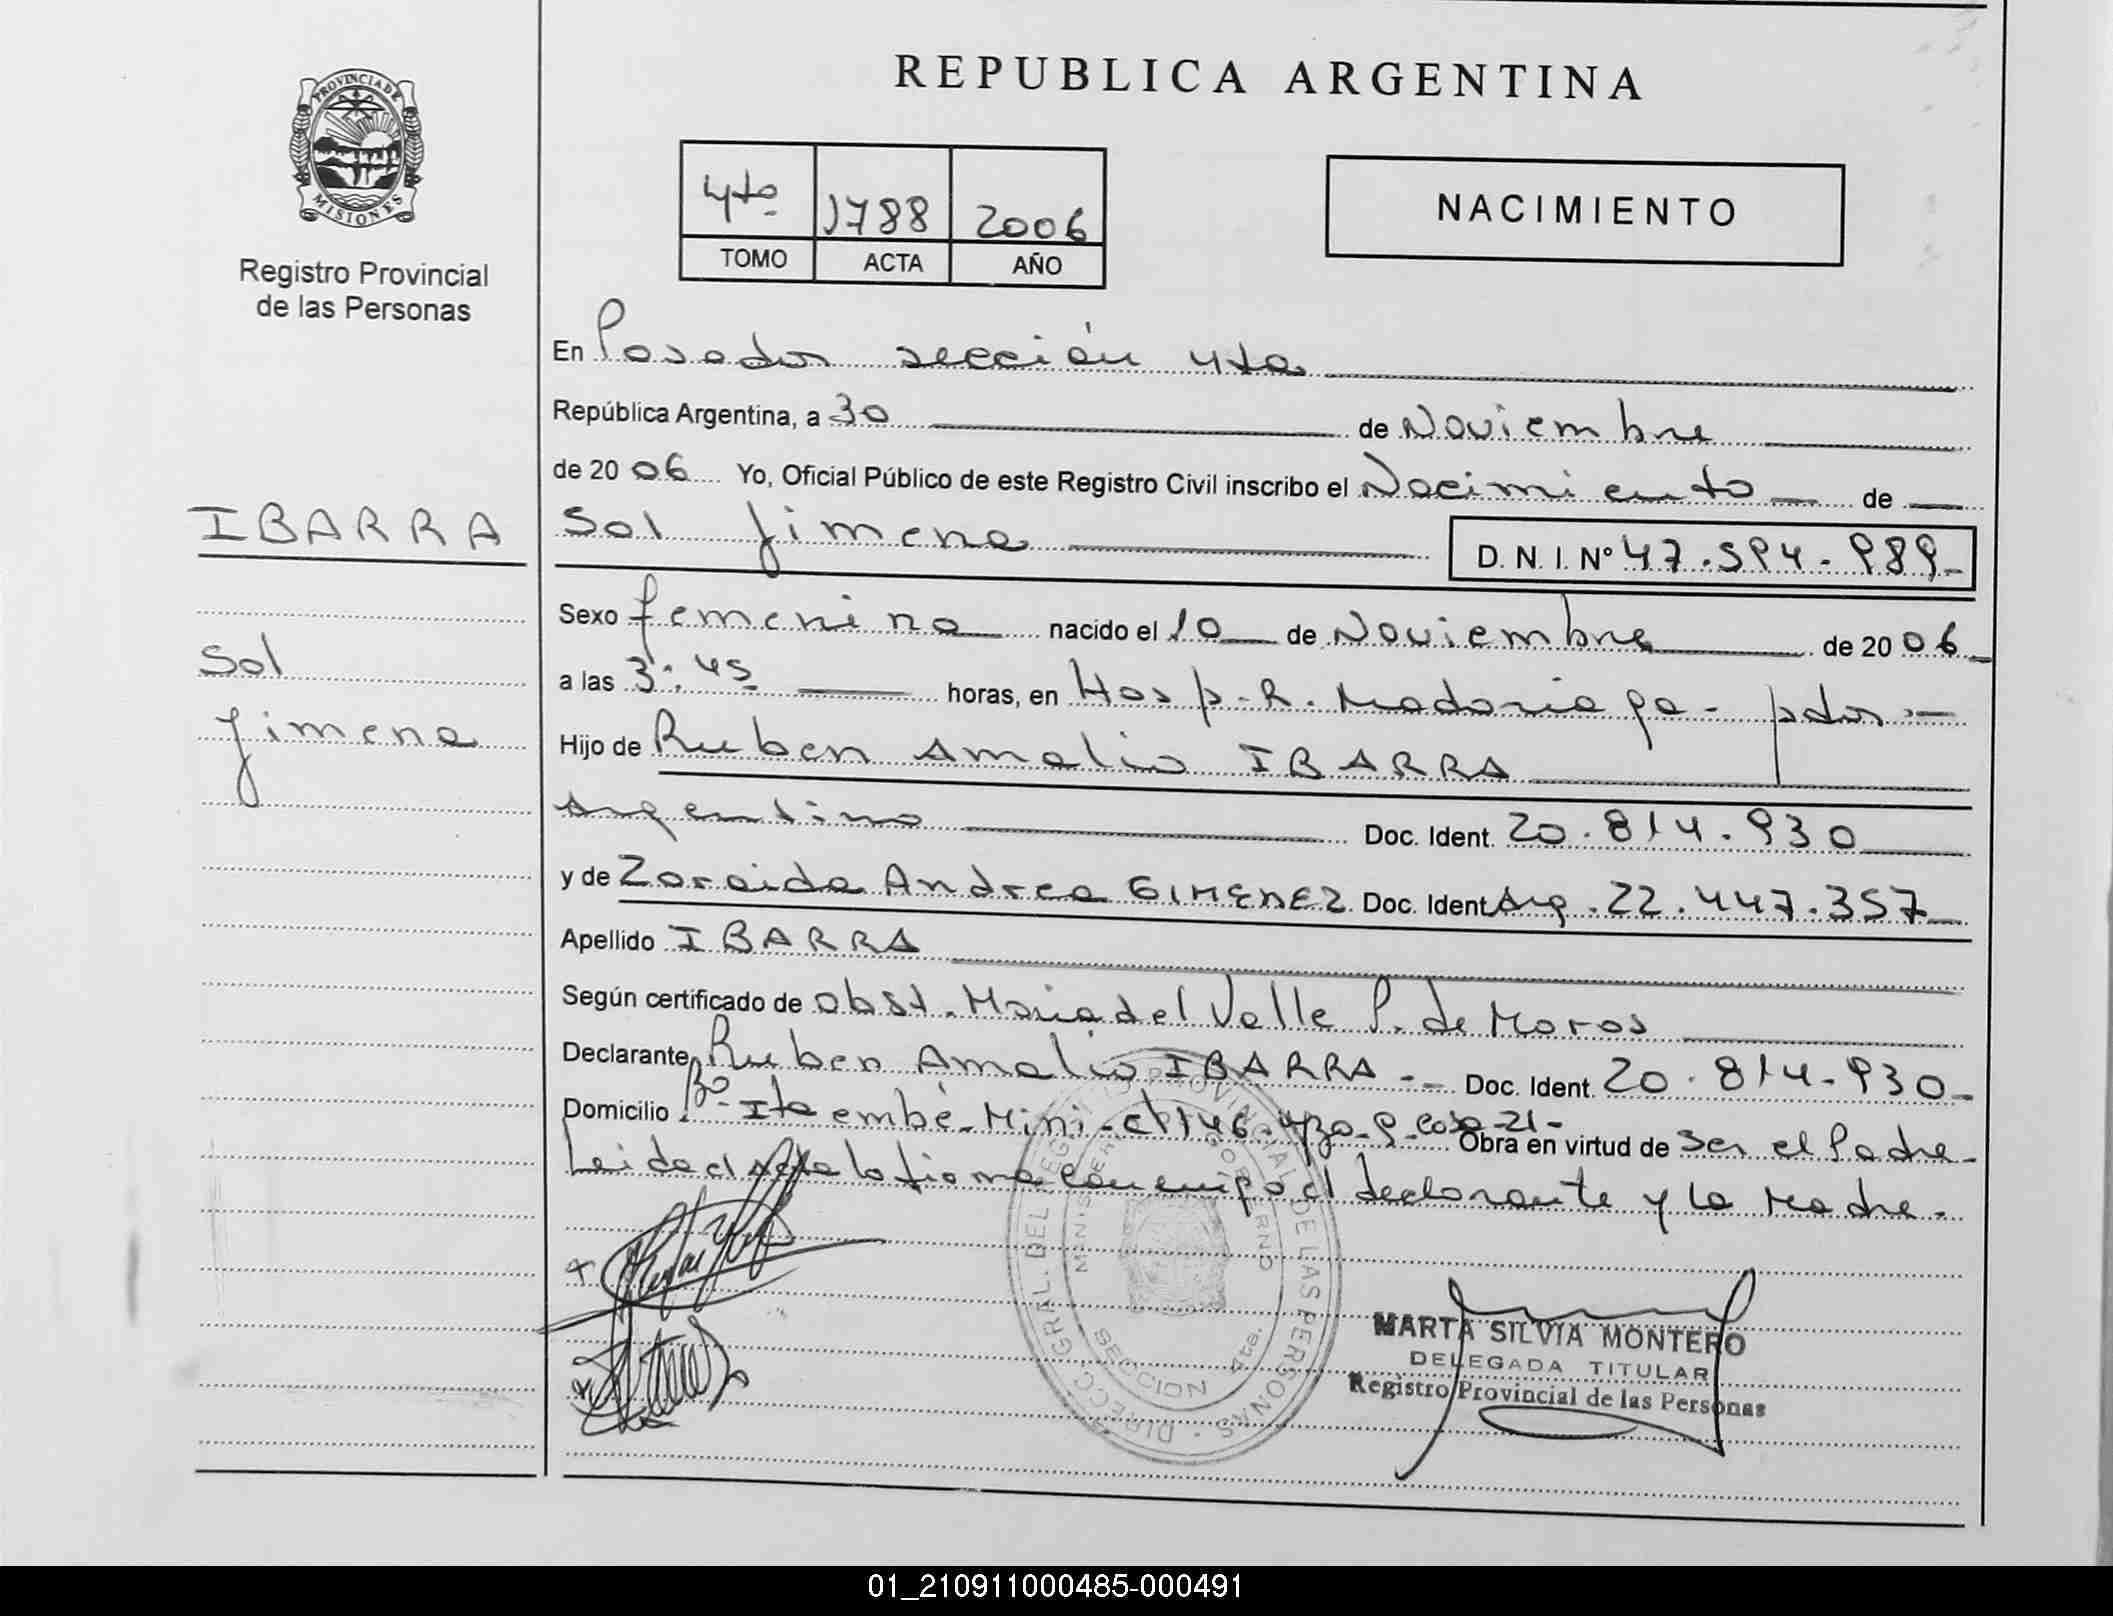 REPUBLICA ARGENTINA
PROVINCIA DE MISIONES
Registro Provincial
de las Personas
4to 1788 2006
TOMO ACTA AÑO
NACIMIENTO
En Posadas sección 4ta
República Argentina, a 30 de Noviembre
de 20 06 Yo, Oficial Público de este Registro Civil inscribo el Nacimiento de
IBARRA
Sol Jimena D. N. I. Nº 47.594.989
Sexo femenino nacido el 10 de Noviembre de 20 06
Sol
a las 3:45 horas, en Hosp. R. Madariaga - pdas
Jimena
Hijo de Ruben Amalio IBARRA
Argentino Doc. Ident. 20.814.930
y de Zoraida Andrea GIMENEZ Doc. Ident Arg. 22.447.357
Apellido IBARRA
Según certificado de obst. Maria del Valle P. de Moros
Declarante Ruben Amalio IBARRA Doc. Ident. 20.814.930
Domicilio Bº Ita embé Mini ch 146 casa 21
Obra en virtud de Ser el Padre
Leida el Acta la firma conmigo el declarante y la Madre
DIRECC. GRAL. DEL REGISTRO PROVINCIAL DE LAS PERSONAS
MINISTERIO GOBIERNO
SECCION 4ta.
MARTA SILVIA MONTERO
DELEGADA TITULAR
Registro Provincial de las Personas
01_210911000485-000491